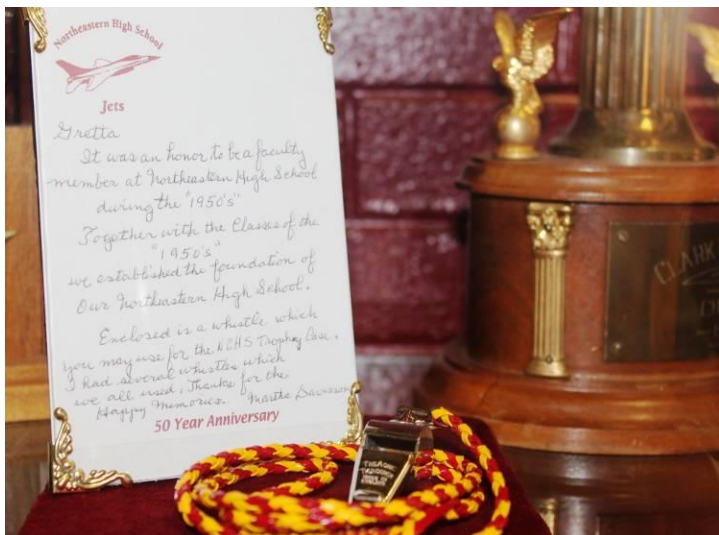 Northeastern High School
Jets
Gretta
It was an honor to be a faculty
member at Northeastern High School
during the "1950's"
Together with the Classes of the
"1950's"
we established the foundation of
Our Northeastern High School.
Enclosed is a whistle which
you may use for the NEHS Trophy Case.
I had several whistles which
we all used. Thanks for the
Happy Memories. Martha Davisson
50 Year Anniversary
CLARK
THE ACME
THUNDERER
MADE IN
ENGLAND